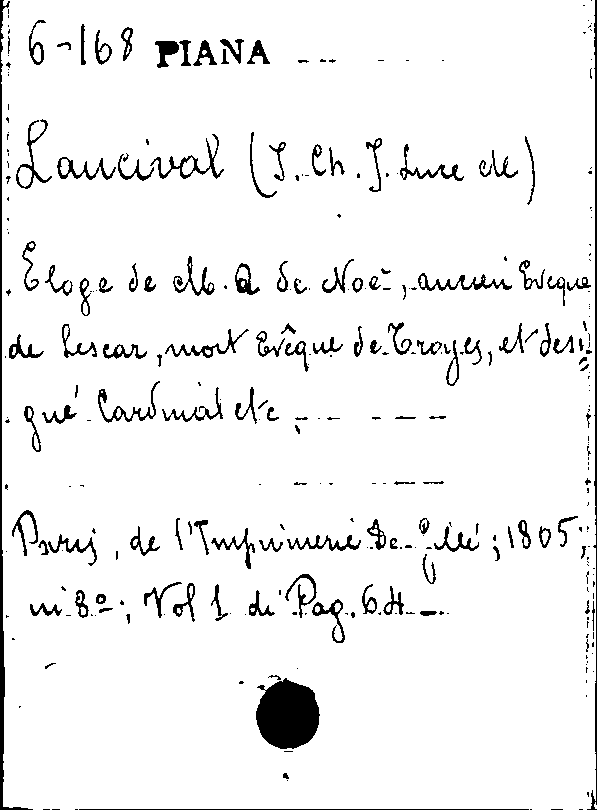 6-168 PIANA
Lancival (J. Ch. J. Luce de)
Eloge de M. A de Noé, ancien Evêque
de Lescar, mort Evêque de Troyes, et dési=
gné Cardinal etc
Paris, de l'Imprimerie De Gillé; 1805;
in 8º; Vol 1 di Pag. 64